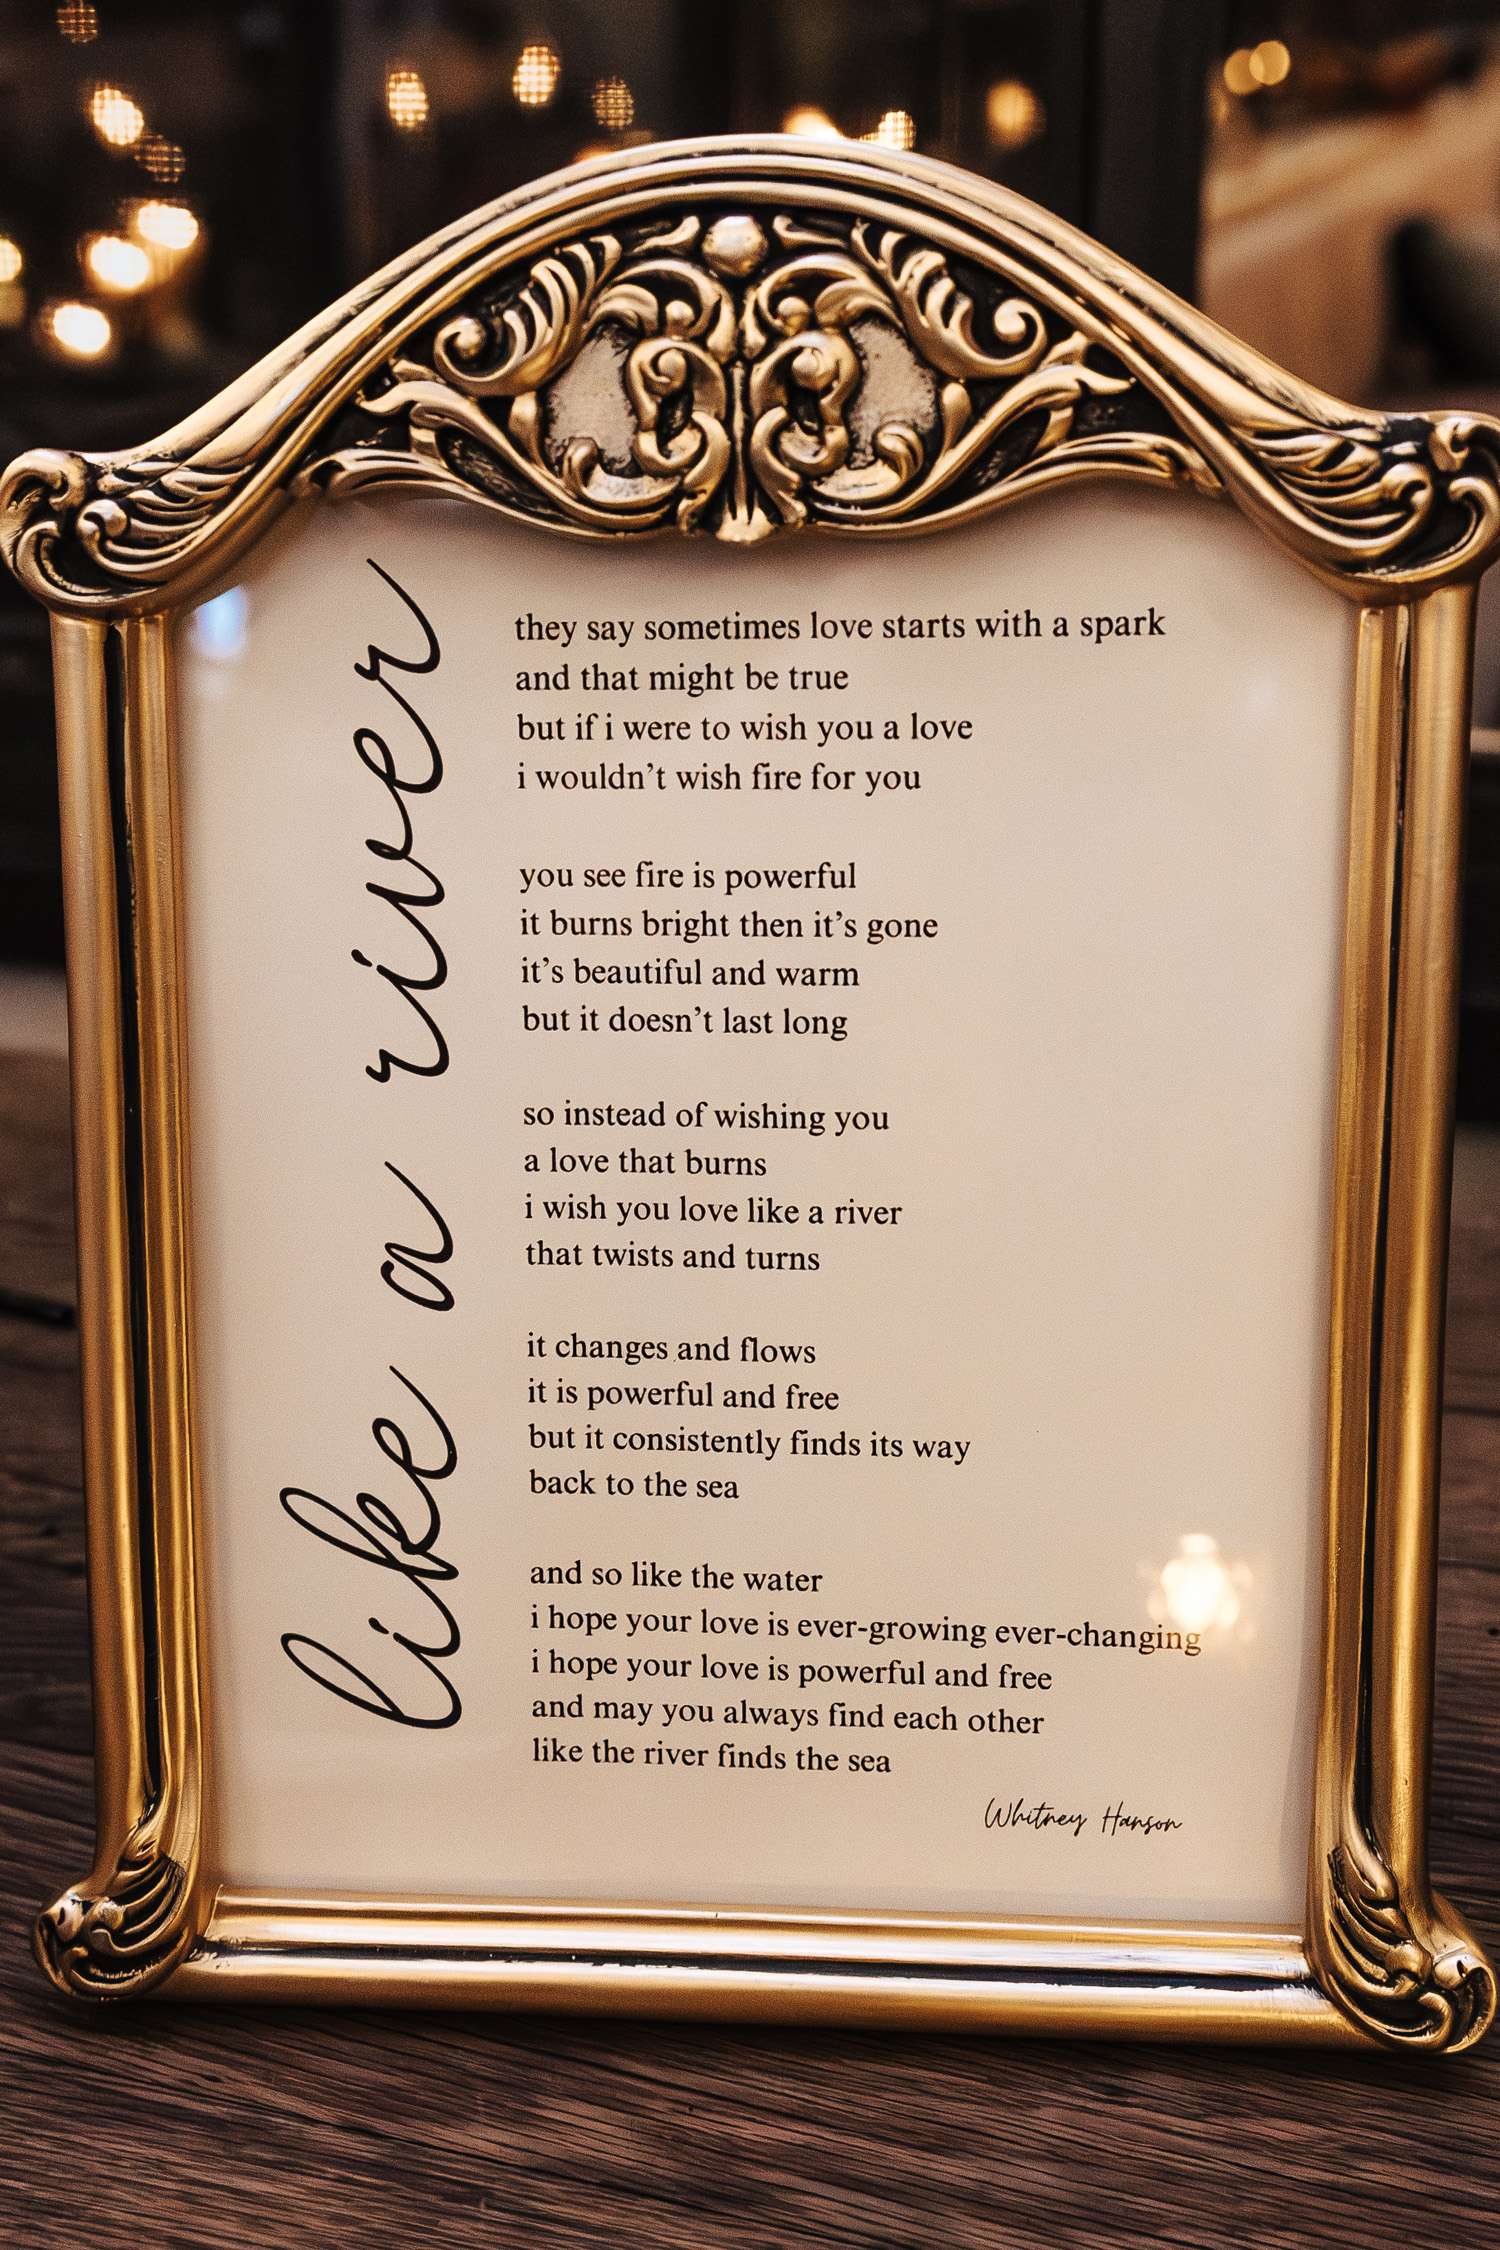 like a river
they say sometimes love starts with a spark
and that might be true
but if i were to wish you a love
i wouldn’t wish fire for you
you see fire is powerful
it burns bright then it’s gone
it’s beautiful and warm
but it doesn’t last long
so instead of wishing you
a love that burns
i wish you love like a river
that twists and turns
it changes and flows
it is powerful and free
but it consistently finds its way
back to the sea
and so like the water
i hope your love is ever-growing ever-changing
i hope your love is powerful and free
and may you always find each other
like the river finds the sea
Whitney Hanson